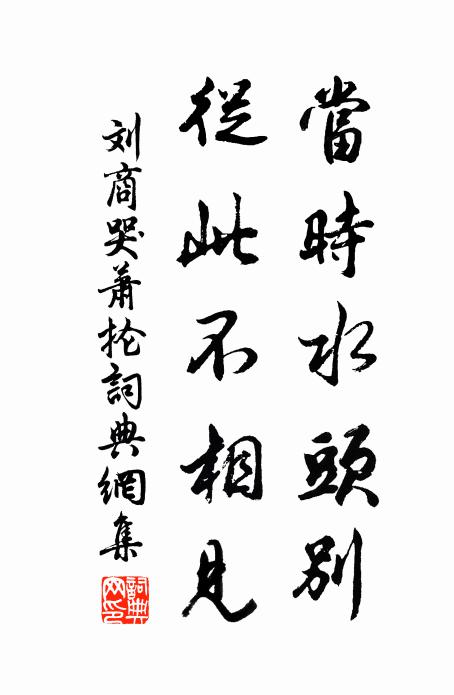 當時水頭別
從此不相見
刘商哭萧抡詞典網集
詞典網印